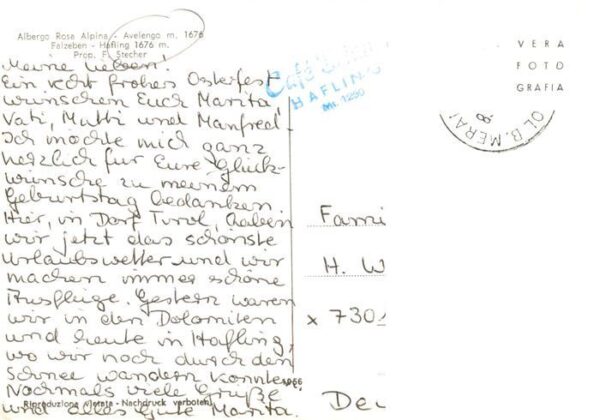 Albergo Rosa Alpina - Avelengo m. 1676
Falzeben - Hafling 1676 m.
Prop. F. Stecher
Meine Lieben!
Ein recht frohes Osterfest
wünschen Euch Marita,
Vati, Mutti und Manfred.
Ich möchte mich ganz
herzlich für Eure Glück-
wünsche zu meinem
Geburtstag bedanken.
Hier, in Dorf Tirol, haben
wir jetzt das schönste
Urlaubswetter und wir
machen immer schöne
Ausflüge. Gestern waren
wir in den Dolomiten
und heute in Hafling,
wo wir noch durch den
Schnee wandern konnten.
Nochmals viele Grüße
und alles Gute Marita.
Riproduzione vietata - Nachdruck verboten
HAFLING
m. 1290
VERA
FOTO
GRAFIA
OL B. MERA
Fami
H. W
x 730
Deu